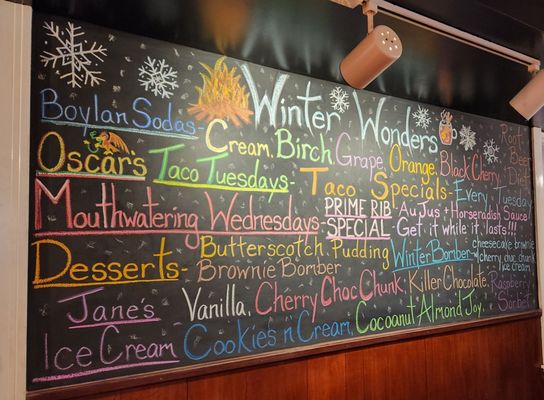 Winter Wonders
Boylan Sodas - Cream, Birch, Grape, Orange, Black Cherry, Root Beer, Diet
Oscars Taco Tuesdays - Taco Specials - Every Tuesday
Mouthwatering Wednesdays - PRIME RIB SPECIAL - Au Jus + Horseradish Sauce! Get it while it lasts!!!
Desserts - Butterscotch Pudding
Brownie Bomber
Winter Bomber - cheesecake brownie w/ cherry choc chunk ice cream
Jane's Ice Cream
Vanilla, Cherry Choc Chunk, Killer Chocolate, Raspberry Sorbet
Cookies 'n' Cream, Cocoanut Almond Joy,